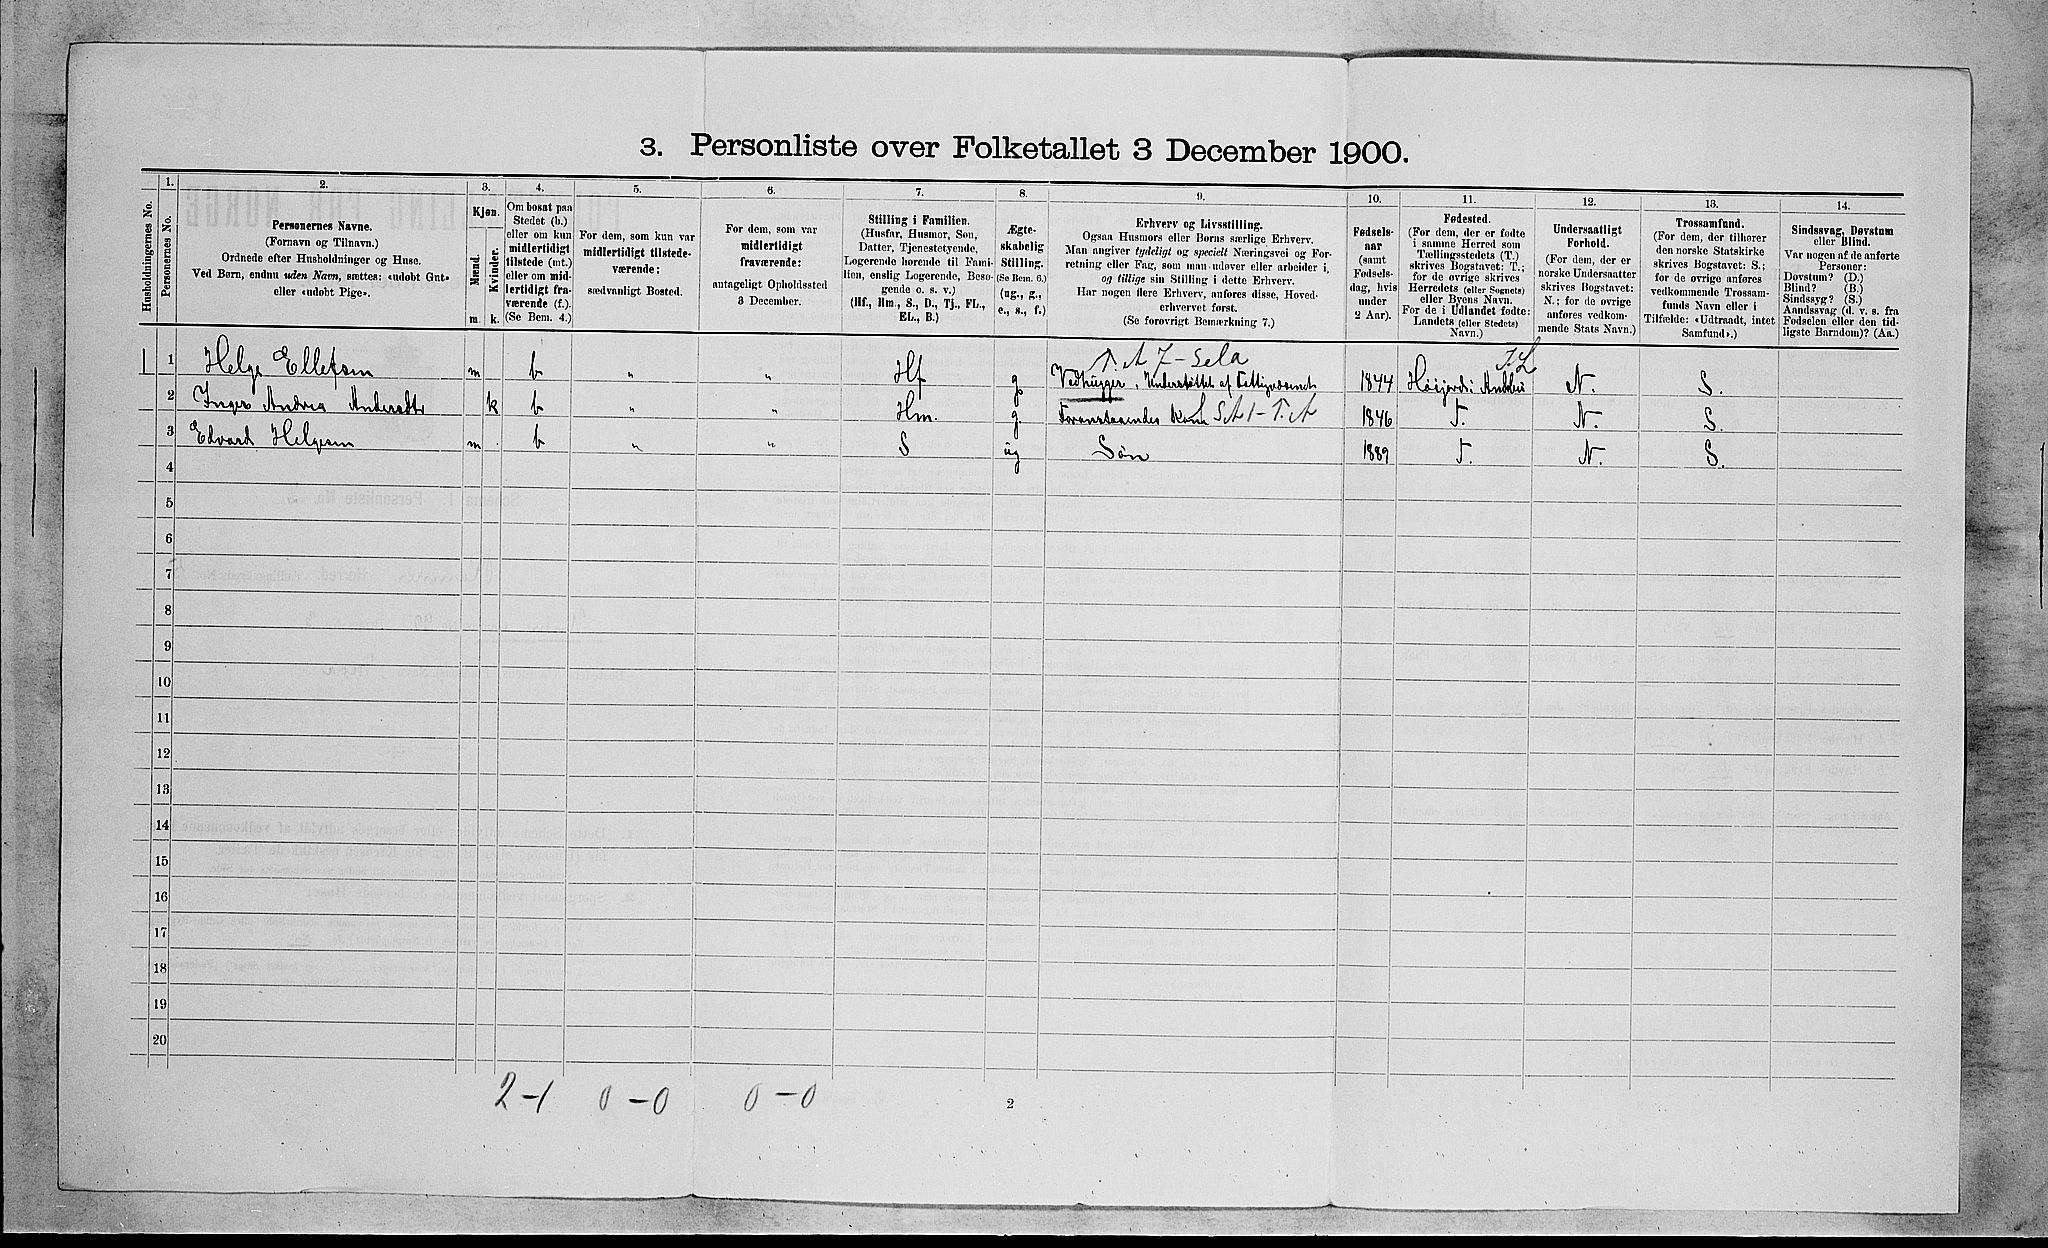 3. Personliste over Folketallet 3 December 1900.
1. 2. 3. 4. 5. 6. 7. 8. 9. 10. 11. 12. 13. 14.
Husholdningernes No.
Personernes No.
Personernes Navne.
(Fornavn og Tilnavn.)
Ordnede efter Husholdninger og Huse.
Ved Børn, endnu uden Navn, sættes: «udøbt Gut»
eller «udøbt Pige».
Kjøn.
Mænd.
Kvinder.
m. k.
Om bosat paa
Stedet (b.)
eller om kun
midlertidigt
tilstede (mt.)
eller om mid-
lertidigt fra-
værende (f.).
(Se Bem. 4.)
For dem, som kun var
midlertidigt tilstede-
værende:
sædvanligt Bosted.
For dem, som var
midlertidigt
fraværende:
antageligt Opholdssted
3 December.
Stilling i Familien.
(Husfar, Husmor, Søn,
Datter, Tjenestetyende,
Logerende hørende til Fami-
lien, enslig Logerende, Besø-
gende o. s. v.)
(Hf., Hm., S., D., Tj., FL.,
EL., B.)
Ægte-
skabelig
Stilling.
(Se Bem. 6.)
(ug., g.,
e., s., f.)
Erhverv og Livsstilling.
Ogsaa Husmors eller Børns særlige Erhverv.
Man angiver tydeligt og specielt Næringsvei og For-
retning eller Fag, som man udøver eller arbeider i,
og tillige sin Stilling i dette Erhverv.
Har nogen flere Erhverv, anføres disse, Hoved-
erhvervet først.
(Se forøvrigt Bemærkning 7.)
Fødsels-
aar
(samt
Fødsels-
dag, hvis
under
2 Aar).
Fødested.
(For dem, der er fødte
i samme Herred som
Tællingsstedets (T.)
skrives Bogstavet: T.;
for de øvrige skrives
Herredets (eller Sognets)
eller Byens Navn.
For de i Udlandet fødte:
Landets (eller Stedets)
Navn.)
Undersaatligt
Forhold.
(For dem, der er
norske Undersaatter
skrives Bogstavet:
N.; for de øvrige
anføres vedkom-
mende Stats Navn.)
Trossamfund.
(For dem, der tilhører
den norske Statskirke
skrives Bogstavet: S.;
for de øvrige anføres
vedkommende Trossam-
funds Navn eller i
Tilfælde: «Udtraadt, intet
Samfund».)
Sindssvag, Døvstum
eller Blind.
Var nogen af de anførte
Personer:
Døvstum? (D.)
Blind? (B.)
Sindssyg? (S.)
Aandssvag (d. v. s. fra
Fødselen eller den tid-
ligste Barndom)? (Aa.)
1 Helge Ellefsen m b " " Hf g Vedhugger, Understøttet af Fattigvæsenet 1844 Høijord i Andebu N. S.
2 Inger Andrea Andersdtr k b " " Hm. g. Foranstaaendes Kone 1846 T. N. S.
3 Edvard Helgesen m b " " S ug Søn 1889 T. N. S.
4
5
6
7
8
9
10
11
12
13
14
15
16
17
18
19
20
2-1 0-0 0-0
2